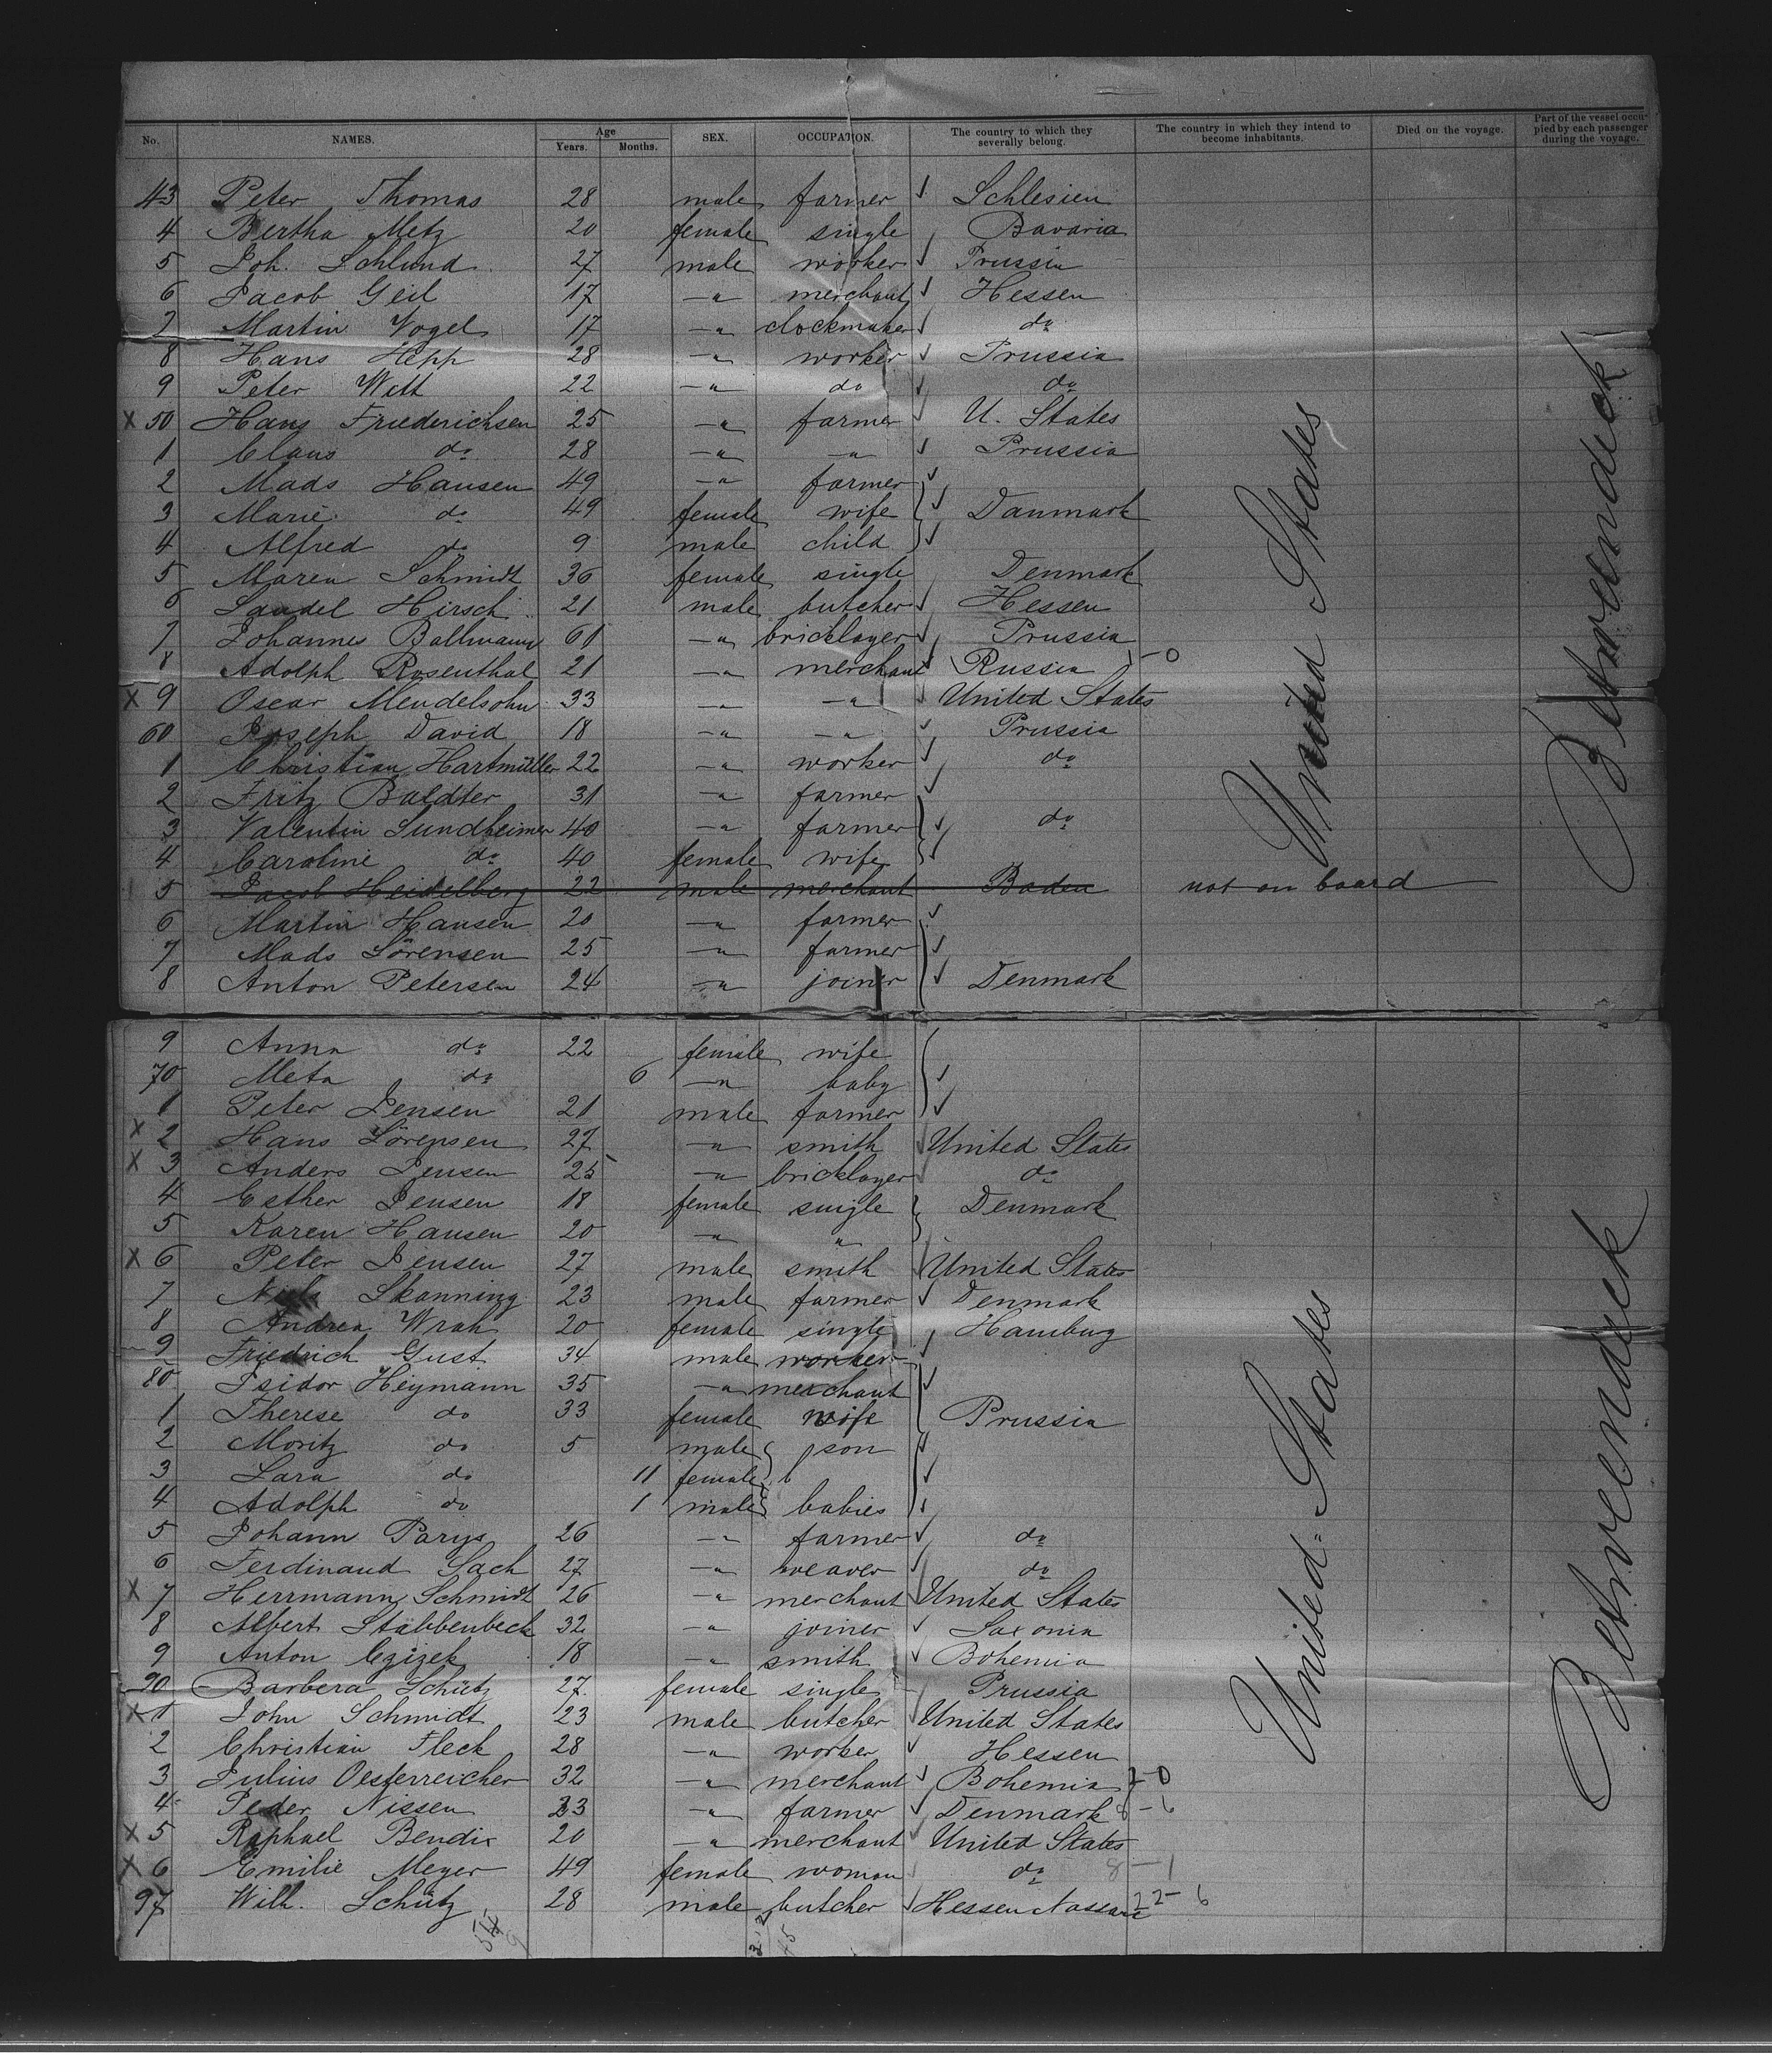 No. NAMES. Age Years. Months. SEX. OCCUPATION. The country to which they severally belong. The country in which they intend to become inhabitants. Died on the voyage. Part of the vessel occupied by each passenger during the voyage.
43 Peter Thomas 28 male farmer ✓ Schlesien
4 Bertha Metz 20 female single Bavaria
5 Joh. Schlund 27 male worker ✓ Prussia
6 Jacob Geil 17 —"— merchant ✓ Hessen
7 Martin Vogel 17 —"— clockmaker ✓ do
8 Hans Hepp 28 —"— worker ✓ Prussia
9 Peter Witt 22 —"— do ✓ do
X 50 Hans Friederichsen 25 —"— farmer ✓ U. States
1 Claus do 28 —"— —"— ✓ Prussia
2 Mads Hansen 49 —"— farmer ✓
3 Marie do 49 female wife ✓ Danmark
4 Alfred do 9 male child ✓
5 Maren Schmidt 36 female single Denmark
6 Sandel Hirsch 21 male butcher ✓ Hessen
7 Johannes Ballmann 61 —"— bricklayer ✓ Prussia
8 Adolph Rosenthal 21 —"— merchant ✓ Russia 1-0
X 9 Oscar Mendelsohn 33 —"— —"— ✓ United States
60 Joseph David 18 —"— —"— ✓ Prussia
1 Christian Hartmüller 22 —"— worker ✓ do
2 Fritz Baldter 31 —"— farmer ✓
3 Valentin Sundheimer 40 —"— farmer ✓ do
4 Caroline do 40 female wife ✓
5 Jacob Heidelberg 22 male merchant Baden not on board
6 Martin Hansen 20 —"— farmer ✓
7 Mads Sörensen 25 —"— farmer ✓
8 Anton Petersen 24 —"— joiner ✓ Denmark
United States
Betweendeck
9 Anna do 22 female wife
70 Meta do 6 —"— baby ✓
1 Peter Jensen 21 male farmer ✓
X 2 Hans Sörensen 27 —"— smith ✓ United States
X 3 Anders Jensen 25 —"— bricklayer ✓ do
4 Esther Jensen 18 female single Denmark
5 Karen Hansen 20 —"— "
X 6 Peter Jensen 27 male smith ✓ United States
7 Niels Skanning 23 male farmer ✓ Denmark
8 Andrea Wrah 20 female single Hamburg
9 Friedrich Gust 34 male worker ✓
80 Isidor Heymann 35 —"— merchant ✓
1 Therese do 33 female wife Prussia
2 Moritz do 5 male son ✓
3 Sara do 11 female ✓
4 Adolph do 1 male babies ✓
5 Johann Parys 26 —"— farmer ✓ do
6 Ferdinand Sach 27 —"— weaver ✓ do
X 7 Herrmann Schmidt 26 —"— merchant ✓ United States
8 Albert Stabbenbeck 32 —"— joiner ✓ Saxonia
9 Anton Czizek 18 —"— smith ✓ Bohemia
90 Barbera Schütz 27 female single Prussia
X 1 John Schmidt 23 male butcher United States
2 Christian Fleck 28 —"— worker ✓ Hessen
3 Julius Oesterreicher 32 —"— merchant ✓ Bohemia 7-0
4 Peder Nissen 23 —"— farmer ✓ Denmark 8-6
X 5 Raphael Bendix 20 —"— merchant ✓ United States
X 6 Emilie Meyer 49 female woman do 8-1
97 Wilh. Schütz 28 male butcher ✓ Hessen Nassau 22-6
United States
Betweendeck